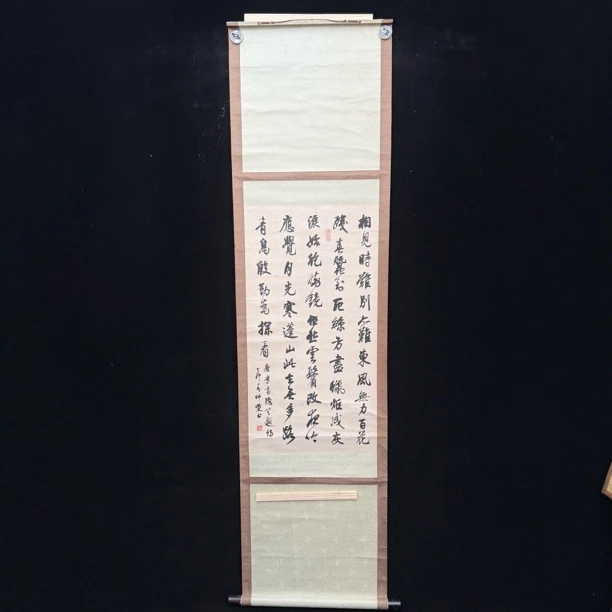 相見時難別亦難東風無力百花
殘春蠶到死絲方盡蠟炬成灰
淚始乾曉鏡但愁雲鬢改夜吟
應覺月光寒蓬山此去無多路
青鳥殷勤為探看
唐李商隱無題詩